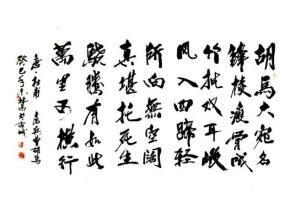 胡馬大宛名
鋒棱瘦骨成
竹批双耳峻
風入四蹄輕
所向無空闊
真堪托死生
驍騰有如此
萬里可横行
唐杜甫 房兵曹胡馬
癸巳年